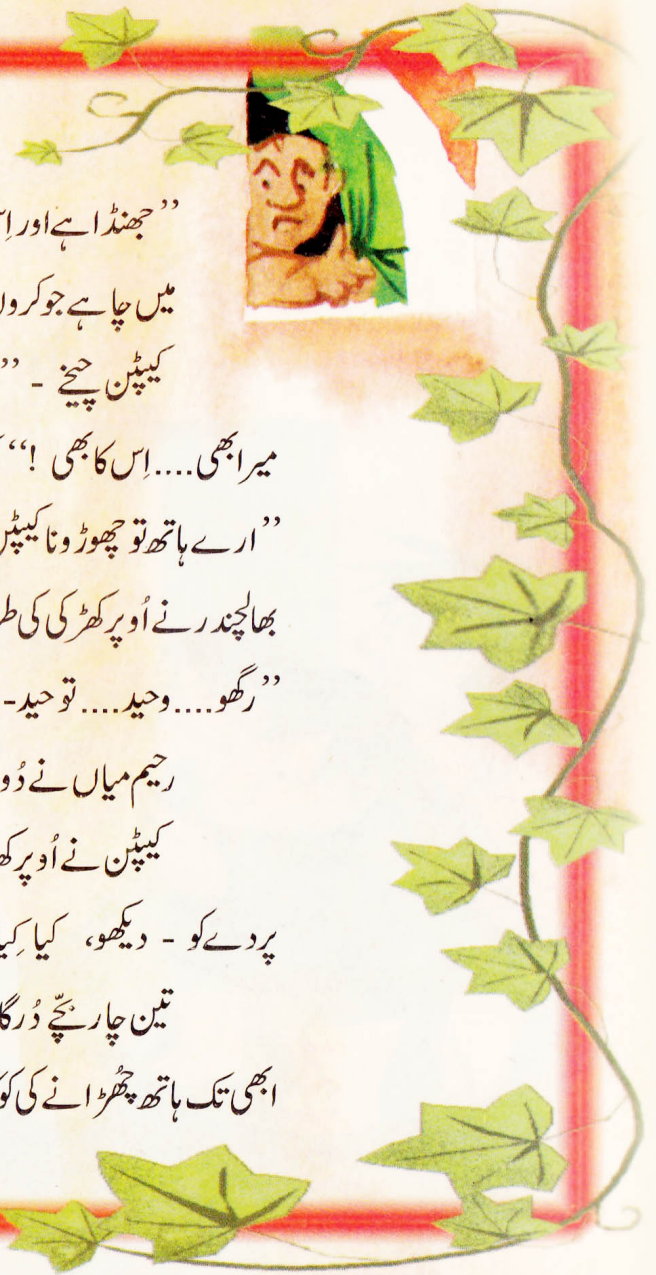 ”جھنڈا ہے اور اِس
میں چاہے جو کروں
کیپٹن چیخے - ”
میرا بھی....اِس کا بھی !“
”ارے ہاتھ تو چھوڑو نا کیپٹن
بھالچندر نے اُوپر کھڑکی کی
”رگھو....وحید....توحید-
رحیم میاں نے
کیپٹن نے اُوپر
پردے کو - دیکھو، کیا
تین چار بچّے
ابھی تک ہاتھ چھُڑانے کی